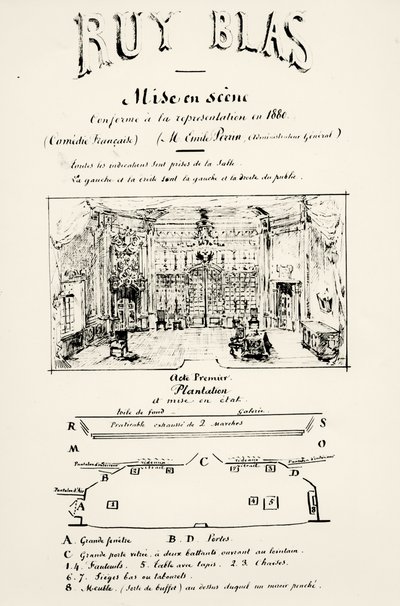 RUY BLAS
Mise en scène
Conforme à la représentation en 1880.
(Comédie Française) (M. Emile Perrin, Administrateur Général)
Toutes les indications sont prises de la Salle.
La gauche et la droite sont la gauche et la droite du public.
Acte Premier.
Plantation
et mise en état.
Toile de fond Galerie.
R Praticable exhaussé de 2 Marches S
M O
C
B D
A
1 4 5 8
A. Grande fenêtre B. D. Portes.
C Grande porte vitrée à deux battants ouvrant au lointain.
1.4. Fauteuils. 5. Table avec tapis. 2. 3. Chaises.
6. 7. Sièges bas ou tabourets.
8. Meuble. (Sorte de buffet) au dessus duquel un miroir penché.